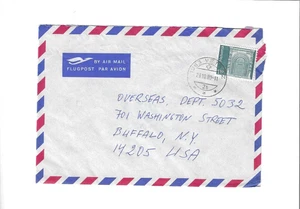 BY AIR MAIL
FLUGPOST PAR AVION
OVERSEAS. DEPT. 5032
701 WASHINGTON STREET
BUFFALO, N.Y.
14205 USA